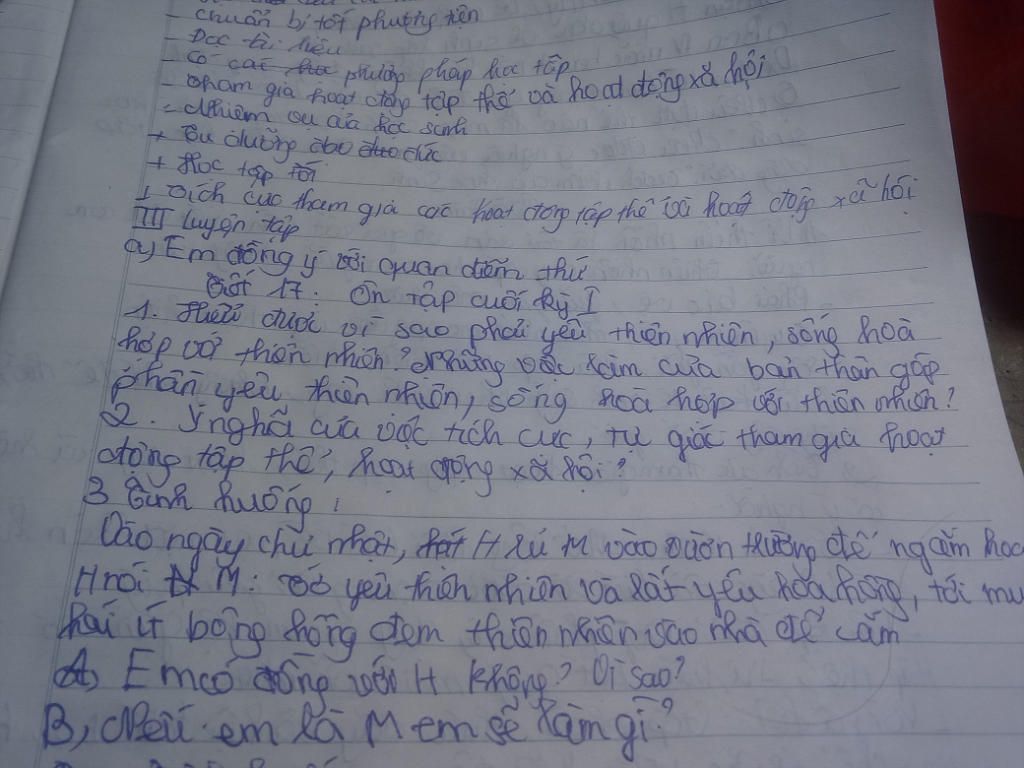 - chuẩn bị tốt phương tiện
- Đọc tài liệu
- Có các phương pháp học tập
- tham gia hoạt động tập thể và hoạt động xã hội
- Nhiệm vụ của học sinh
+ Tu dưỡng đạo đức
+ Học tập tốt
+ Tích cực tham gia các hoạt động tập thể và hoạt động xã hội
III luyện tập
a) Em đồng ý với quan điểm thứ
Tiết 17: Ôn tập cuối kỳ I
1. Hiểu được vì sao phải yêu thiên nhiên, sống hoà
hợp với thiên nhiên? Những việc làm của bản thân góp
phần yêu thiên nhiên, sống hoà hợp với thiên nhiên?
2. Ý nghĩa của việc tích cực, tự giác tham gia hoạt
động tập thể, hoạt động xã hội?
3 Tình huống:
Vào ngày chủ nhật, H rủ M vào vườn trường để ngắm hoa
H nói M: tớ yêu thiên nhiên và rất yêu hoa hồng, tới
hái ít bông hồng đem thiên nhiên vào nhà để cắm
A, Em có đồng với H không? Vì sao?
B, Nếu em là M em sẽ làm gì?